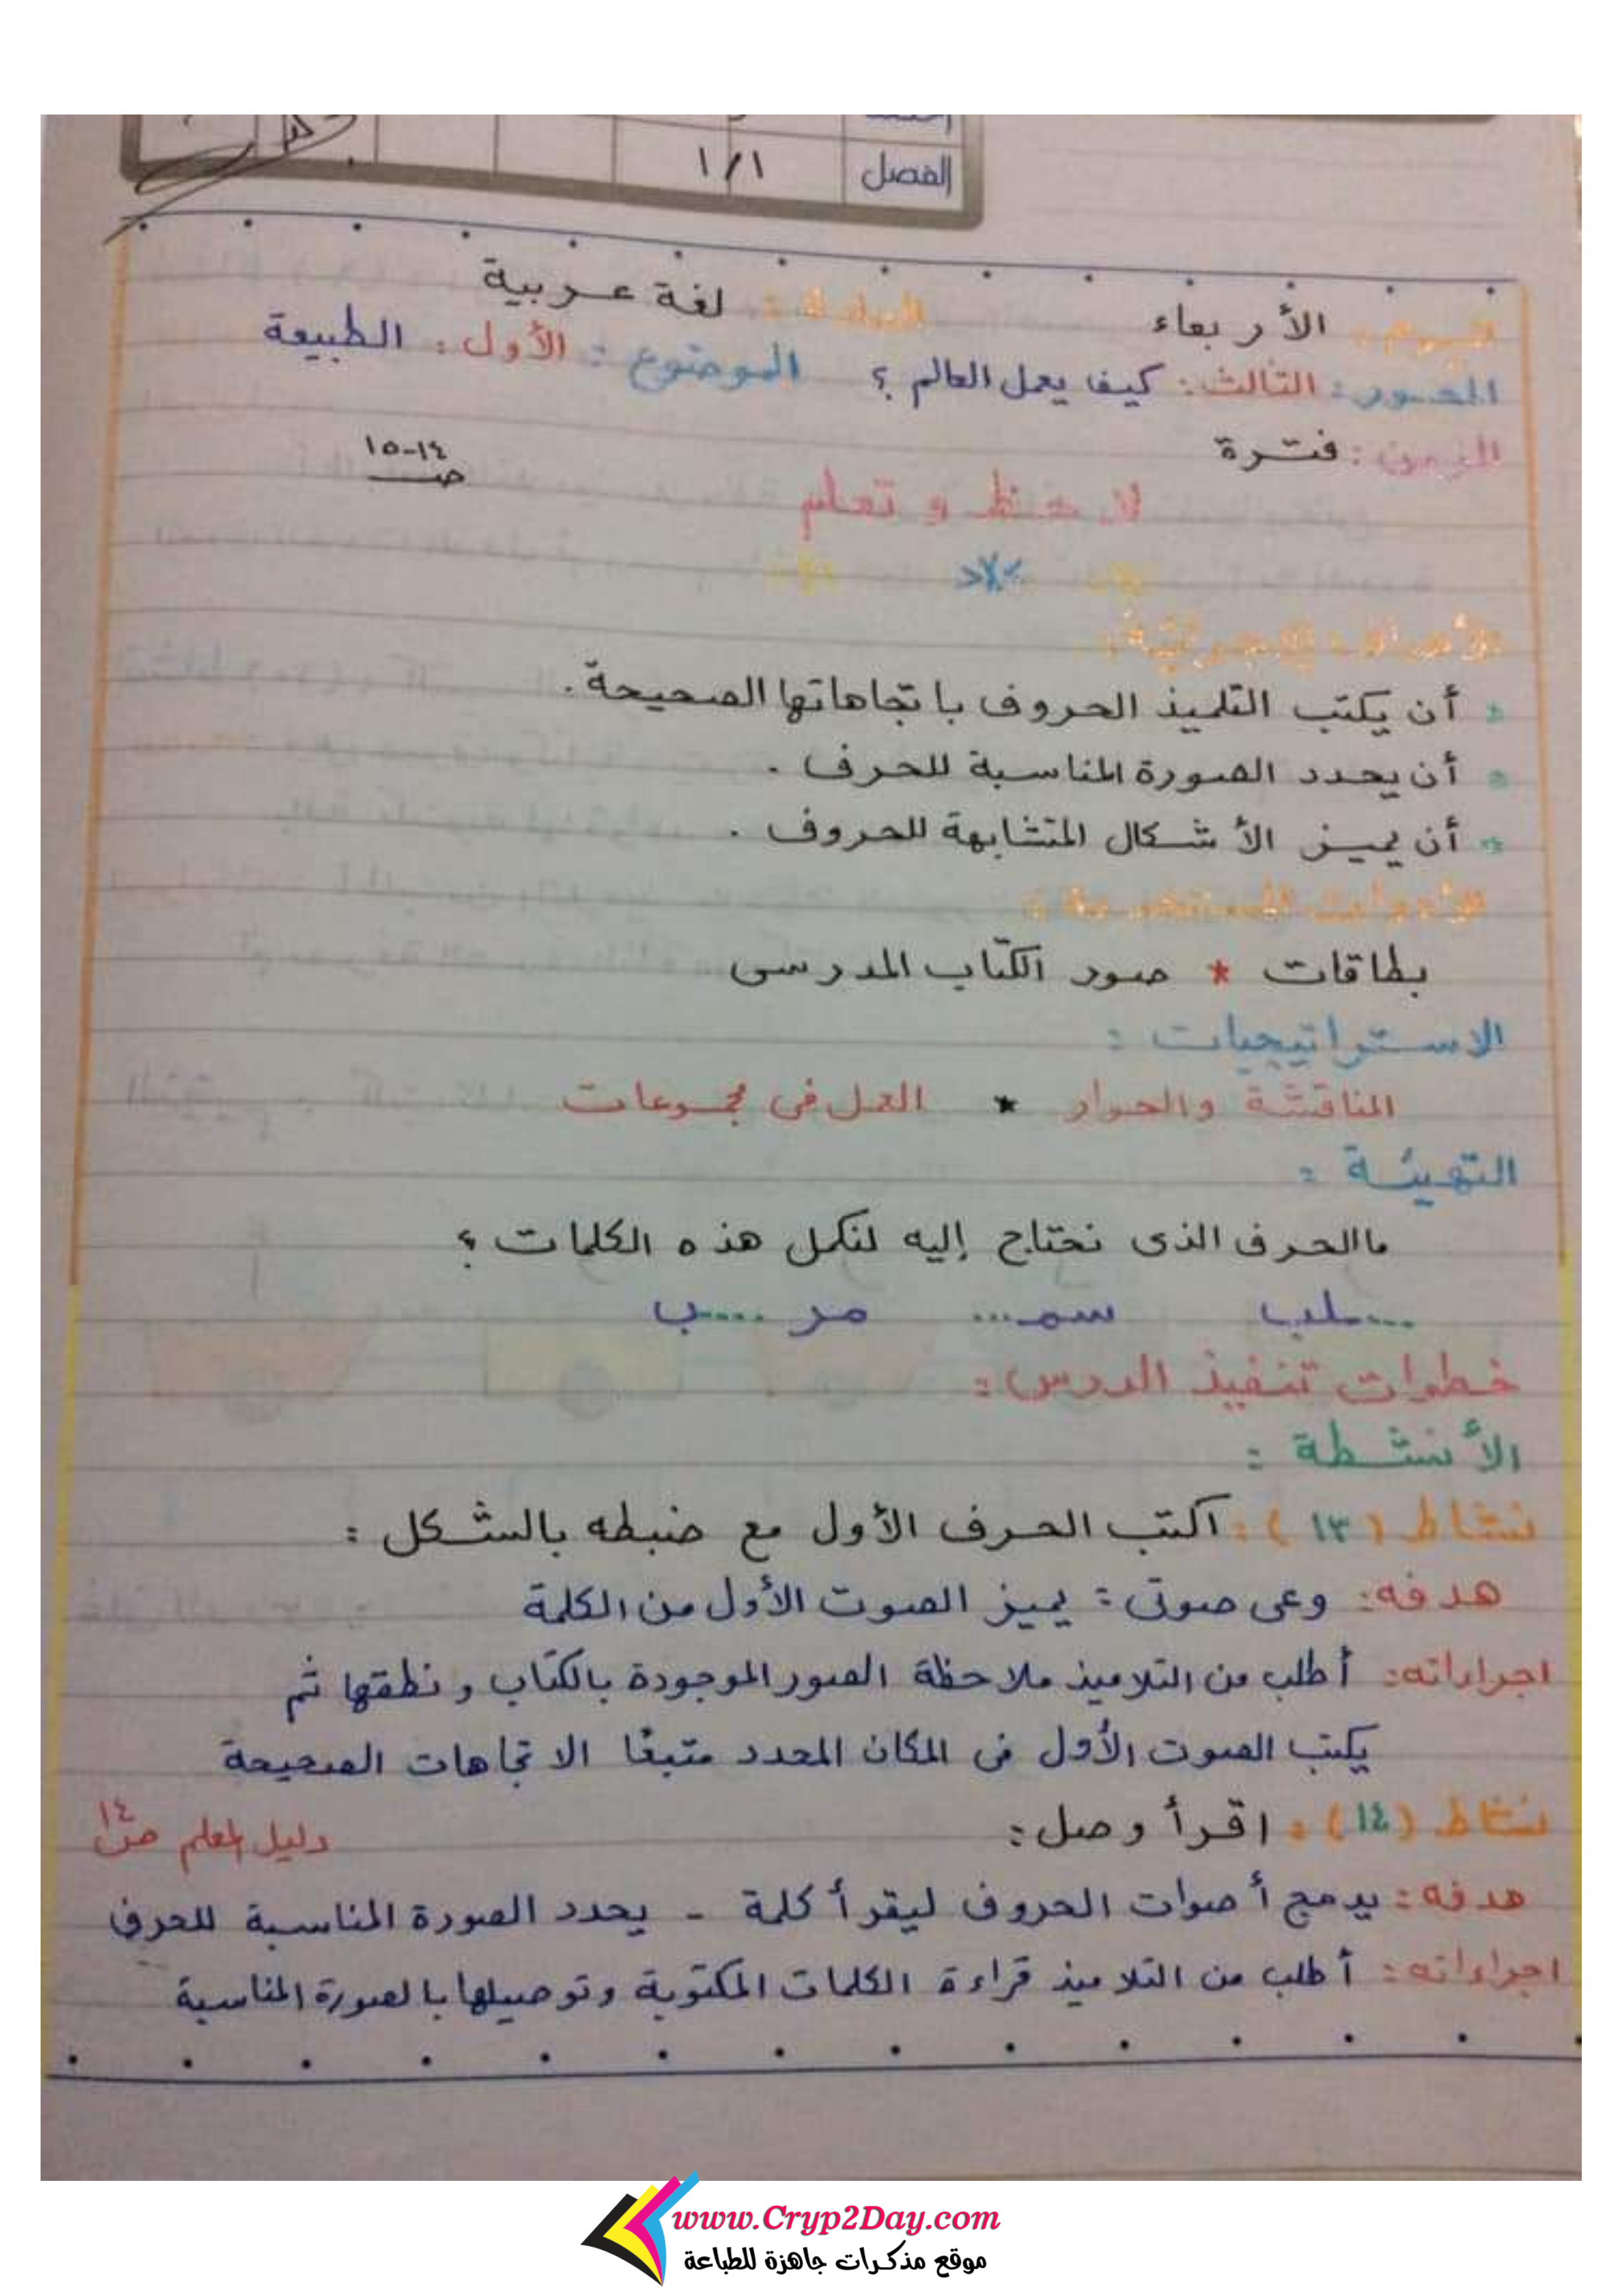 الفصل ١/١
اليوم: الأربعاء المادة: لغة عربية
المحور: الثالث: كيف يعمل العالم؟ الموضوع: الأول: الطبيعة
الزمن: فترة
ص ١٤-١٥
لاحظ و تعلم
الأهداف الإجرائية:
أن يكتب التلميذ الحروف باتجاهاتها الصحيحة.
أن يحدد الصورة المناسبة للحرف.
أن يميز الأشكال المتشابهة للحروف.
الأدوات المستخدمة:
بطاقات * صور الكتاب المدرسى
الاستراتيجيات:
المناقشة والحوار * العمل فى مجموعات
التهيئة:
ما الحرف الذى نحتاج إليه لنكمل هذه الكلمات؟
....لب سمـ... مر....ب
خطوات تنفيذ الدرس:
الأنشطة:
نشاط (١٣): اكتب الحرف الأول مع ضبطه بالشكل:
هدفه: وعى صوتى: يميز الصوت الأول من الكلمة
اجراءاته: أطلب من التلاميذ ملاحظة الصور الموجودة بالكتاب ونطقها ثم
يكتب الصوت الأول فى المكان المحدد متبعًا الاتجاهات الصحيحة
نشاط (١٤): اقرأ وصل: دليل المعلم ص ١٤
هدفه: يدمج أصوات الحروف ليقرأ كلمة - يحدد الصورة المناسبة للحرف
اجراءاته: أطلب من التلاميذ قراءة الكلمات المكتوبة وتوصيلها بالصورة المناسبة
www.Cryp2Day.com
موقع مذكرات جاهزة للطباعة